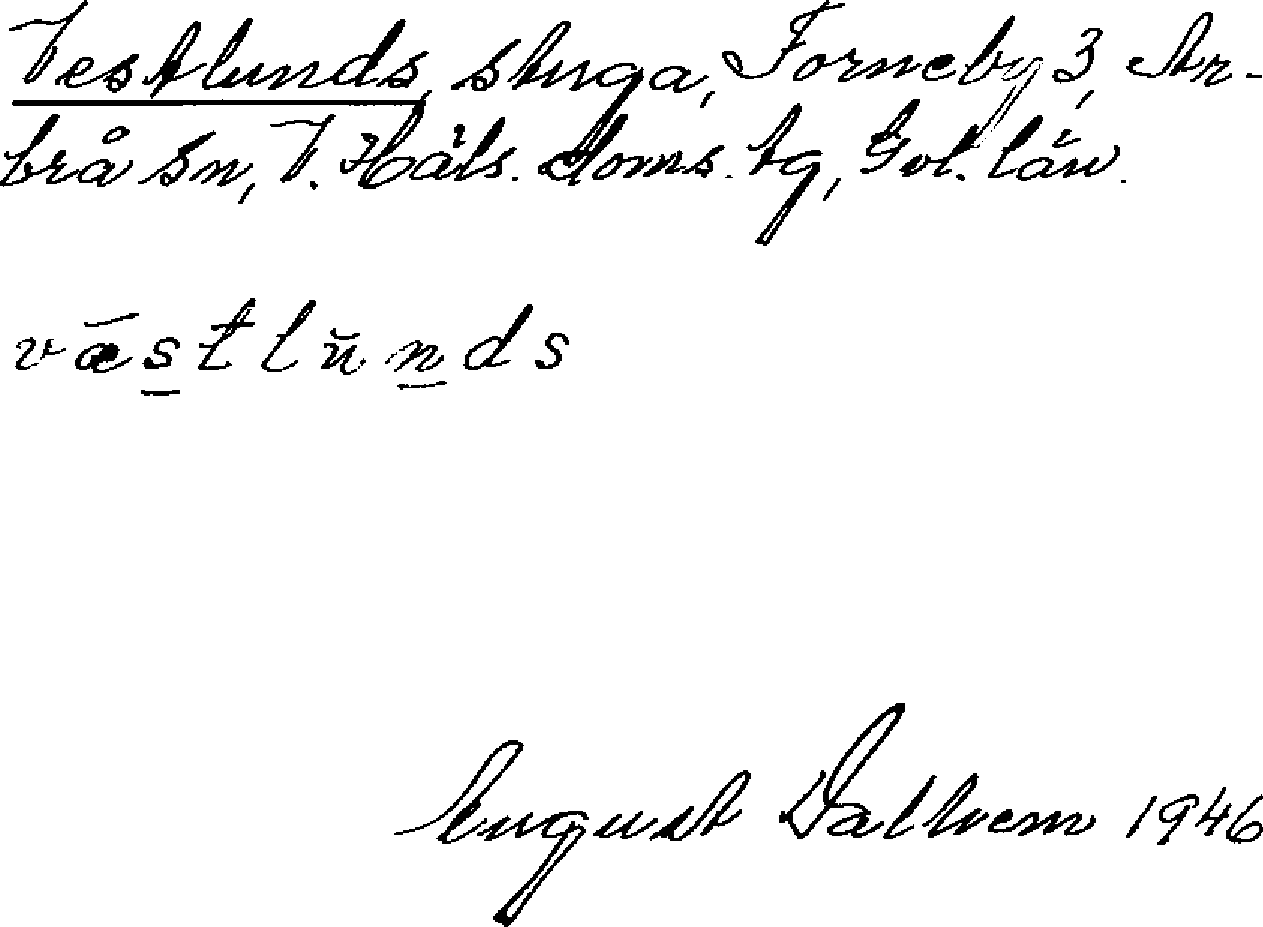 Vestlunds, stuga, Forneby 3, Ar-
brå sn, V. Häls. doms. tg, Gvl. län.
væ̅s̲tlŭn̲ds
August Dalhem 1946